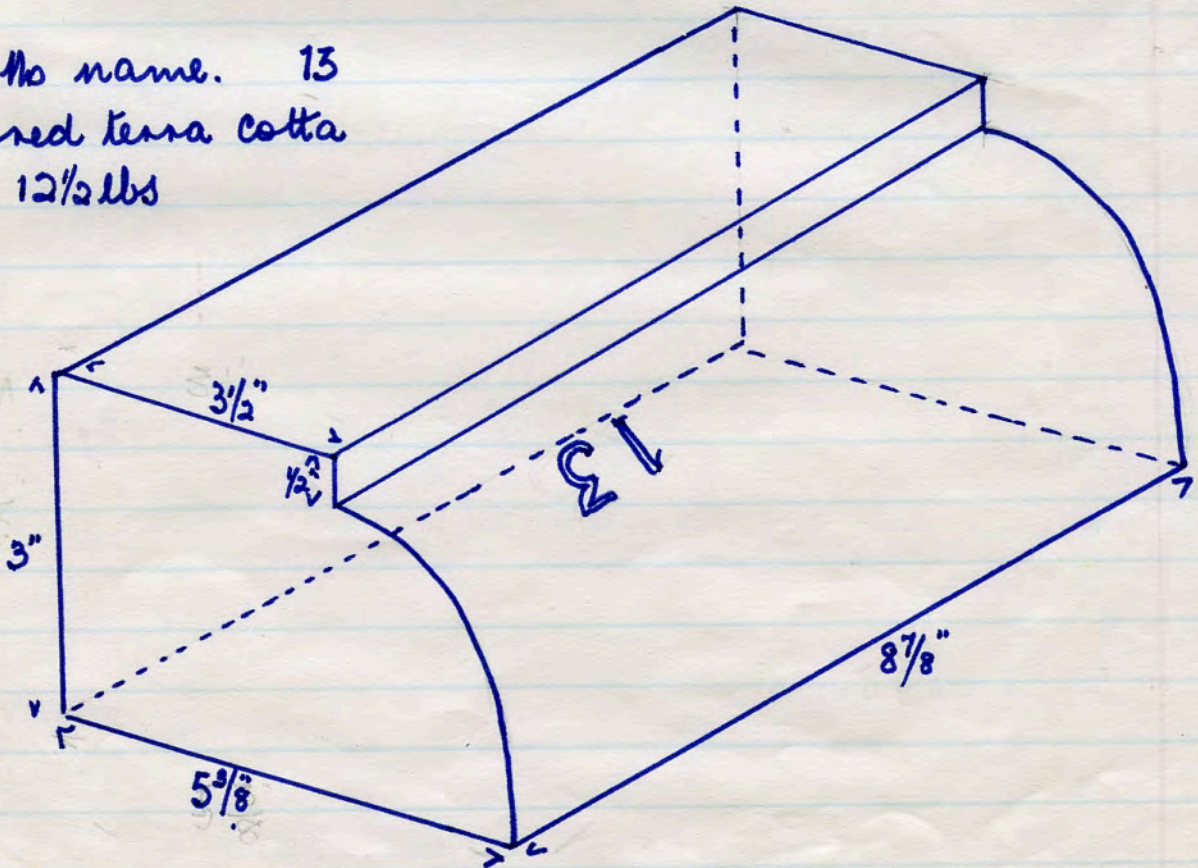 No name. 13
red terra cotta
12½ lbs
3½"
½"
3"
13
8⅞"
5⅜"